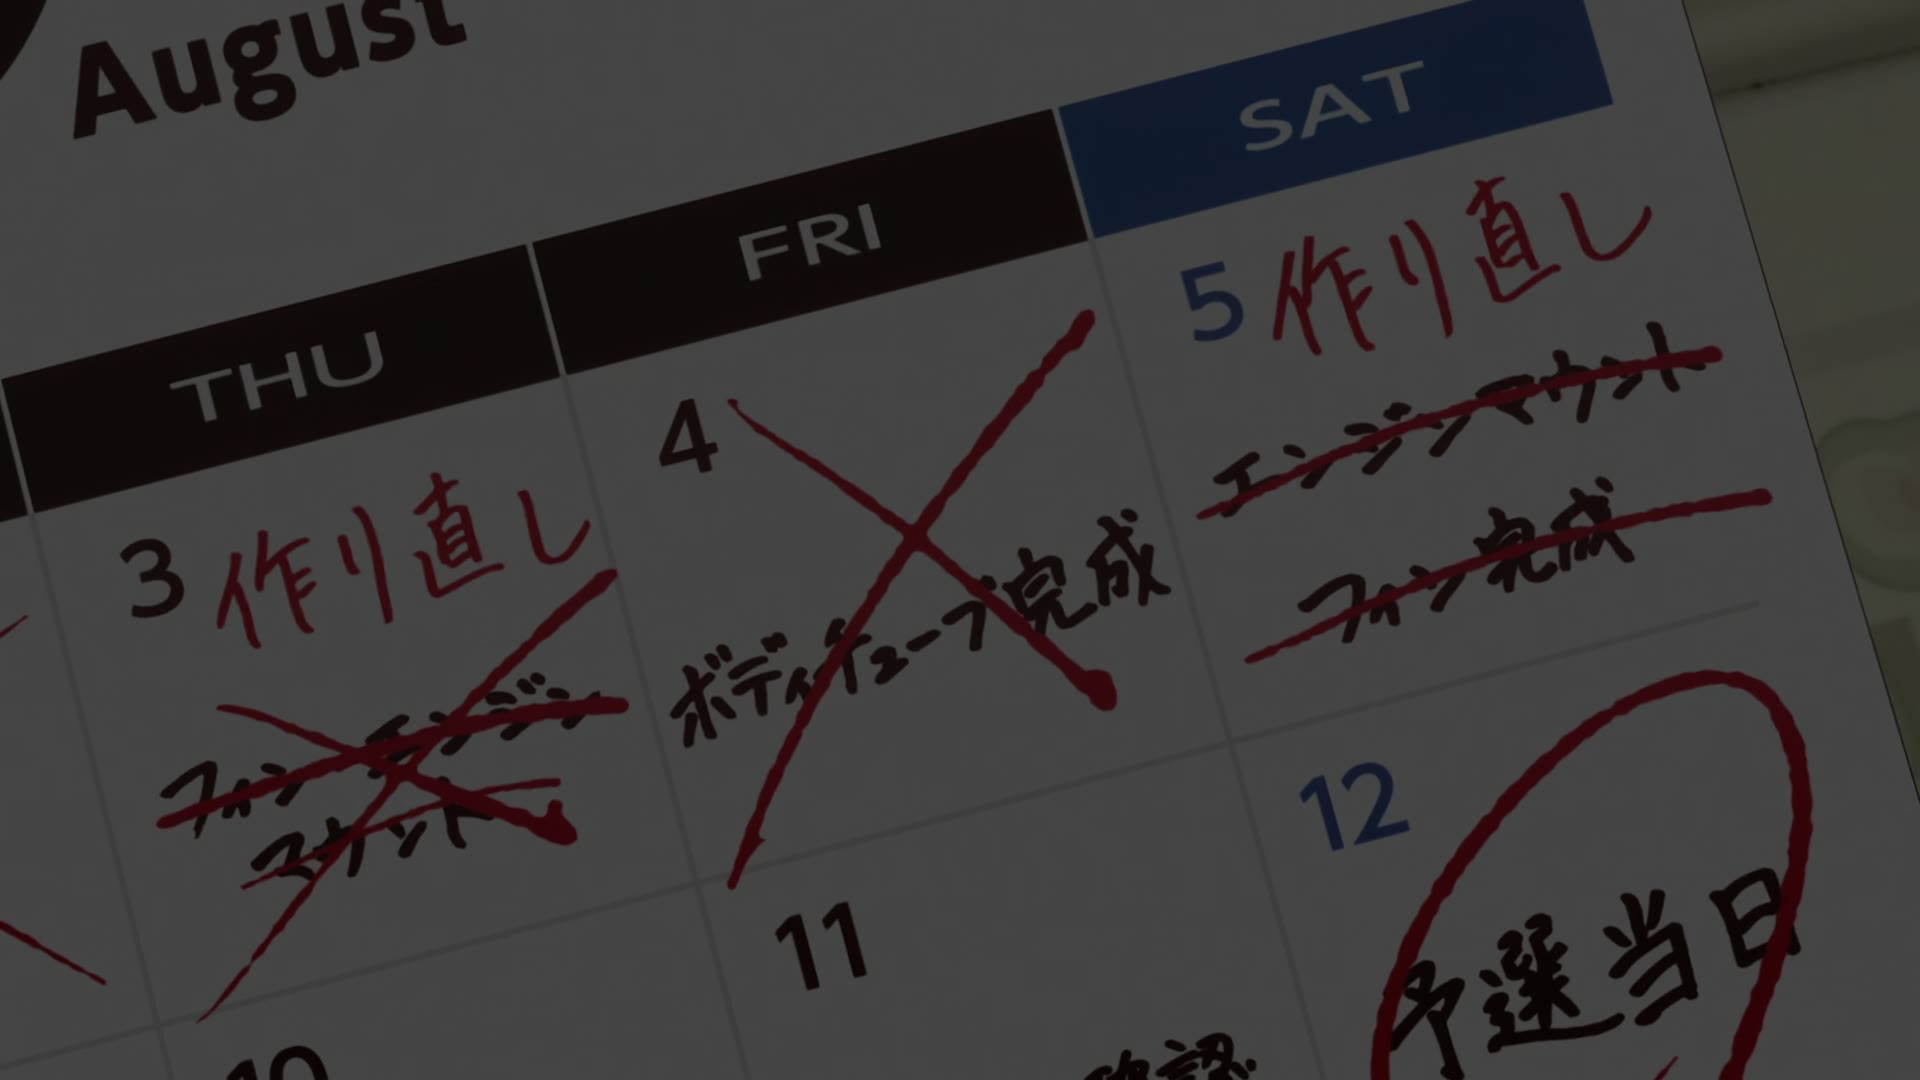 August
THU
FRI
SAT
3 作り直し
フィン エンジン
マウント
4
ボディチューブ完成
5 作り直し
エンジンマウント
フィン完成
10
11
確認
12
予選当日